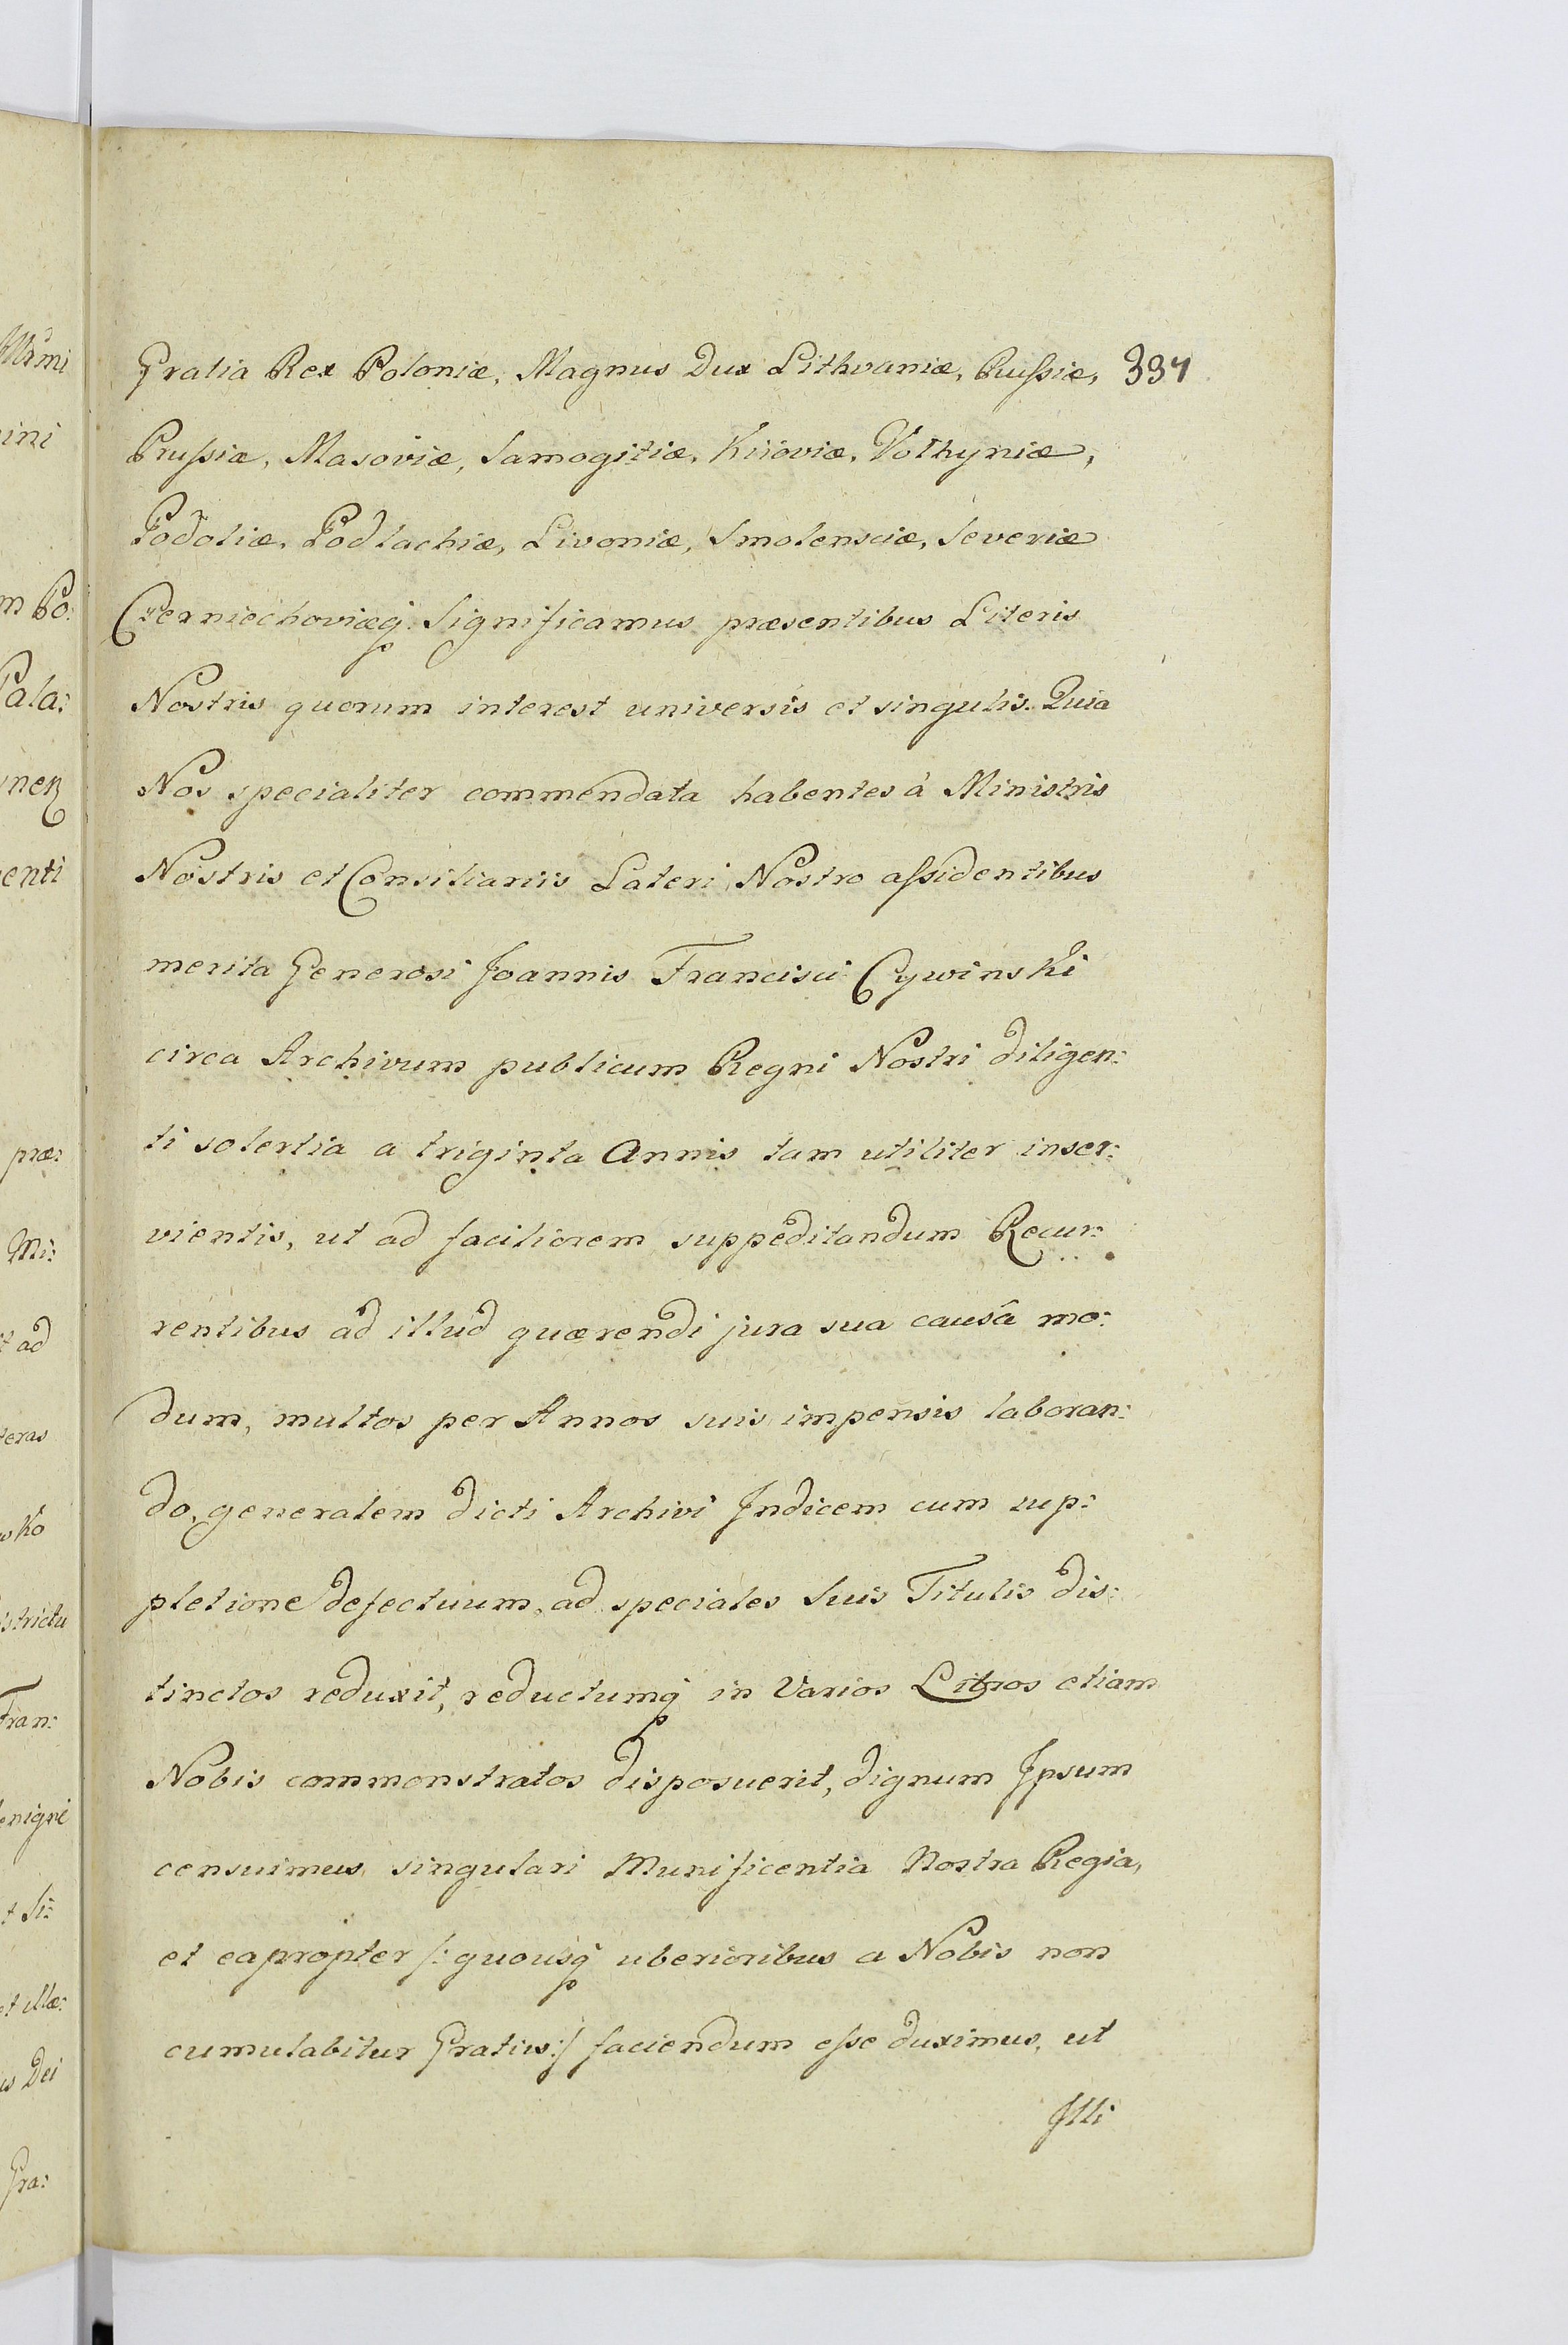 Gratia Rex Poloniæ, Magnus Dux Lithvaniæ, Russiæ, 334
Prussiæ, Masoviæ, Samogitiæ, Kiioviæ, Volhyniæ,
Podoliæ, Podlachiæ, Livoniæ, Smolensciæ, Severiæ
Czerniechoviæq Significamus præsentibus Literis
Nostris quorum interest universis et singulis. Quia
Nos specialiter commendata habentes à Ministris
Nostris et Consiliariis Lateri Nostro assidentibus
merita Generosi Joannis Francisci Cywinski
circa Archivum publicum Regni Nostri diligen:
ti solertia a triginta Annis tam utiliter inser:
vientis, ut ad faciliorem suppeditandum Recur:
rentibus ad illud quærendi jura sua causâ mo:
dum, multos per Annos suis impensis laboran:
do, generalem dicti Archivi Indicem cum sup:
pletione defectuum, ad speciales Suis Titulis dis:
tinctos reduxit, reductumq in Varios Libros etiam
Nobis commonstratos disposuerit, dignum Ipsum
censuimus singulari Munificentia Nostra Regia,
et eapropter /: quousq uberioribus a Nobis non
cumulabitur Gratiis :/ faciendum esse duximus, ut
Illi
ini
m Po:
Pala:
enti
præ:
Mi:
t ad
teras
sko
istrictu
Fran:
enigne
t Si:
et illæ:
is Dei
Gra: